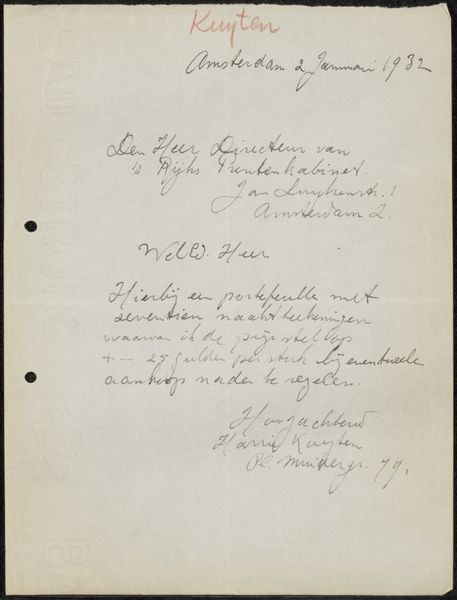 Kuyten
Amsterdam 2 Januari 1932
Den Heer Directeur van
's Rijks Prentenkabinet.
Jan Luykenstr. 1
Amsterdam Z.
WelEd. Heer
Hierbij een portefeulle met
seventien naaktteekeningen
waarvan ik de prijs stel op
+- 25 gulden per stuk bij eventueele
aankoop nader te regelen.
Hoogachtend
Harrie Kuyten
Pl. Muidergr. 79.